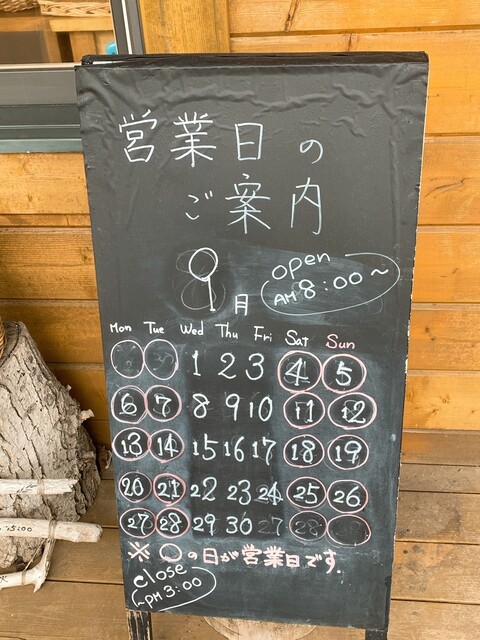 営業日の
ご案内
9月
open
AM 8:00~
Mon Tue Wed Thu Fri Sat Sun
1 2 3 4 5
6 7 8 9 10 11 12
13 14 15 16 17 18 19
20 21 22 23 24 25 26
27 28 29 30 27 28
※ ○の日が営業日です.
close
~PM 3:00